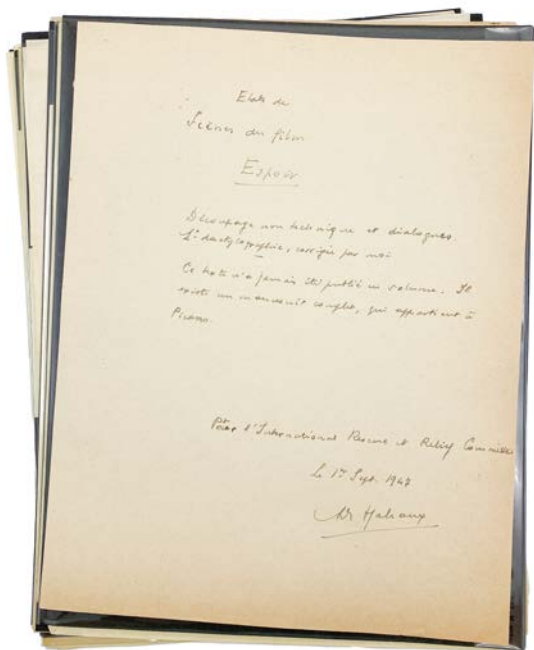 Etats de
Scènes du film
Espoir
Découpage non technique et dialogues.
dactylographie, corrigée par moi
Ce texte n'a jamais été publié en volume. Il
existe un manuscrit complet, qui appartient à
Picasso.
Pour l'International Rescue et Relief Committee
Le 1er Sept. 1947
André Malraux